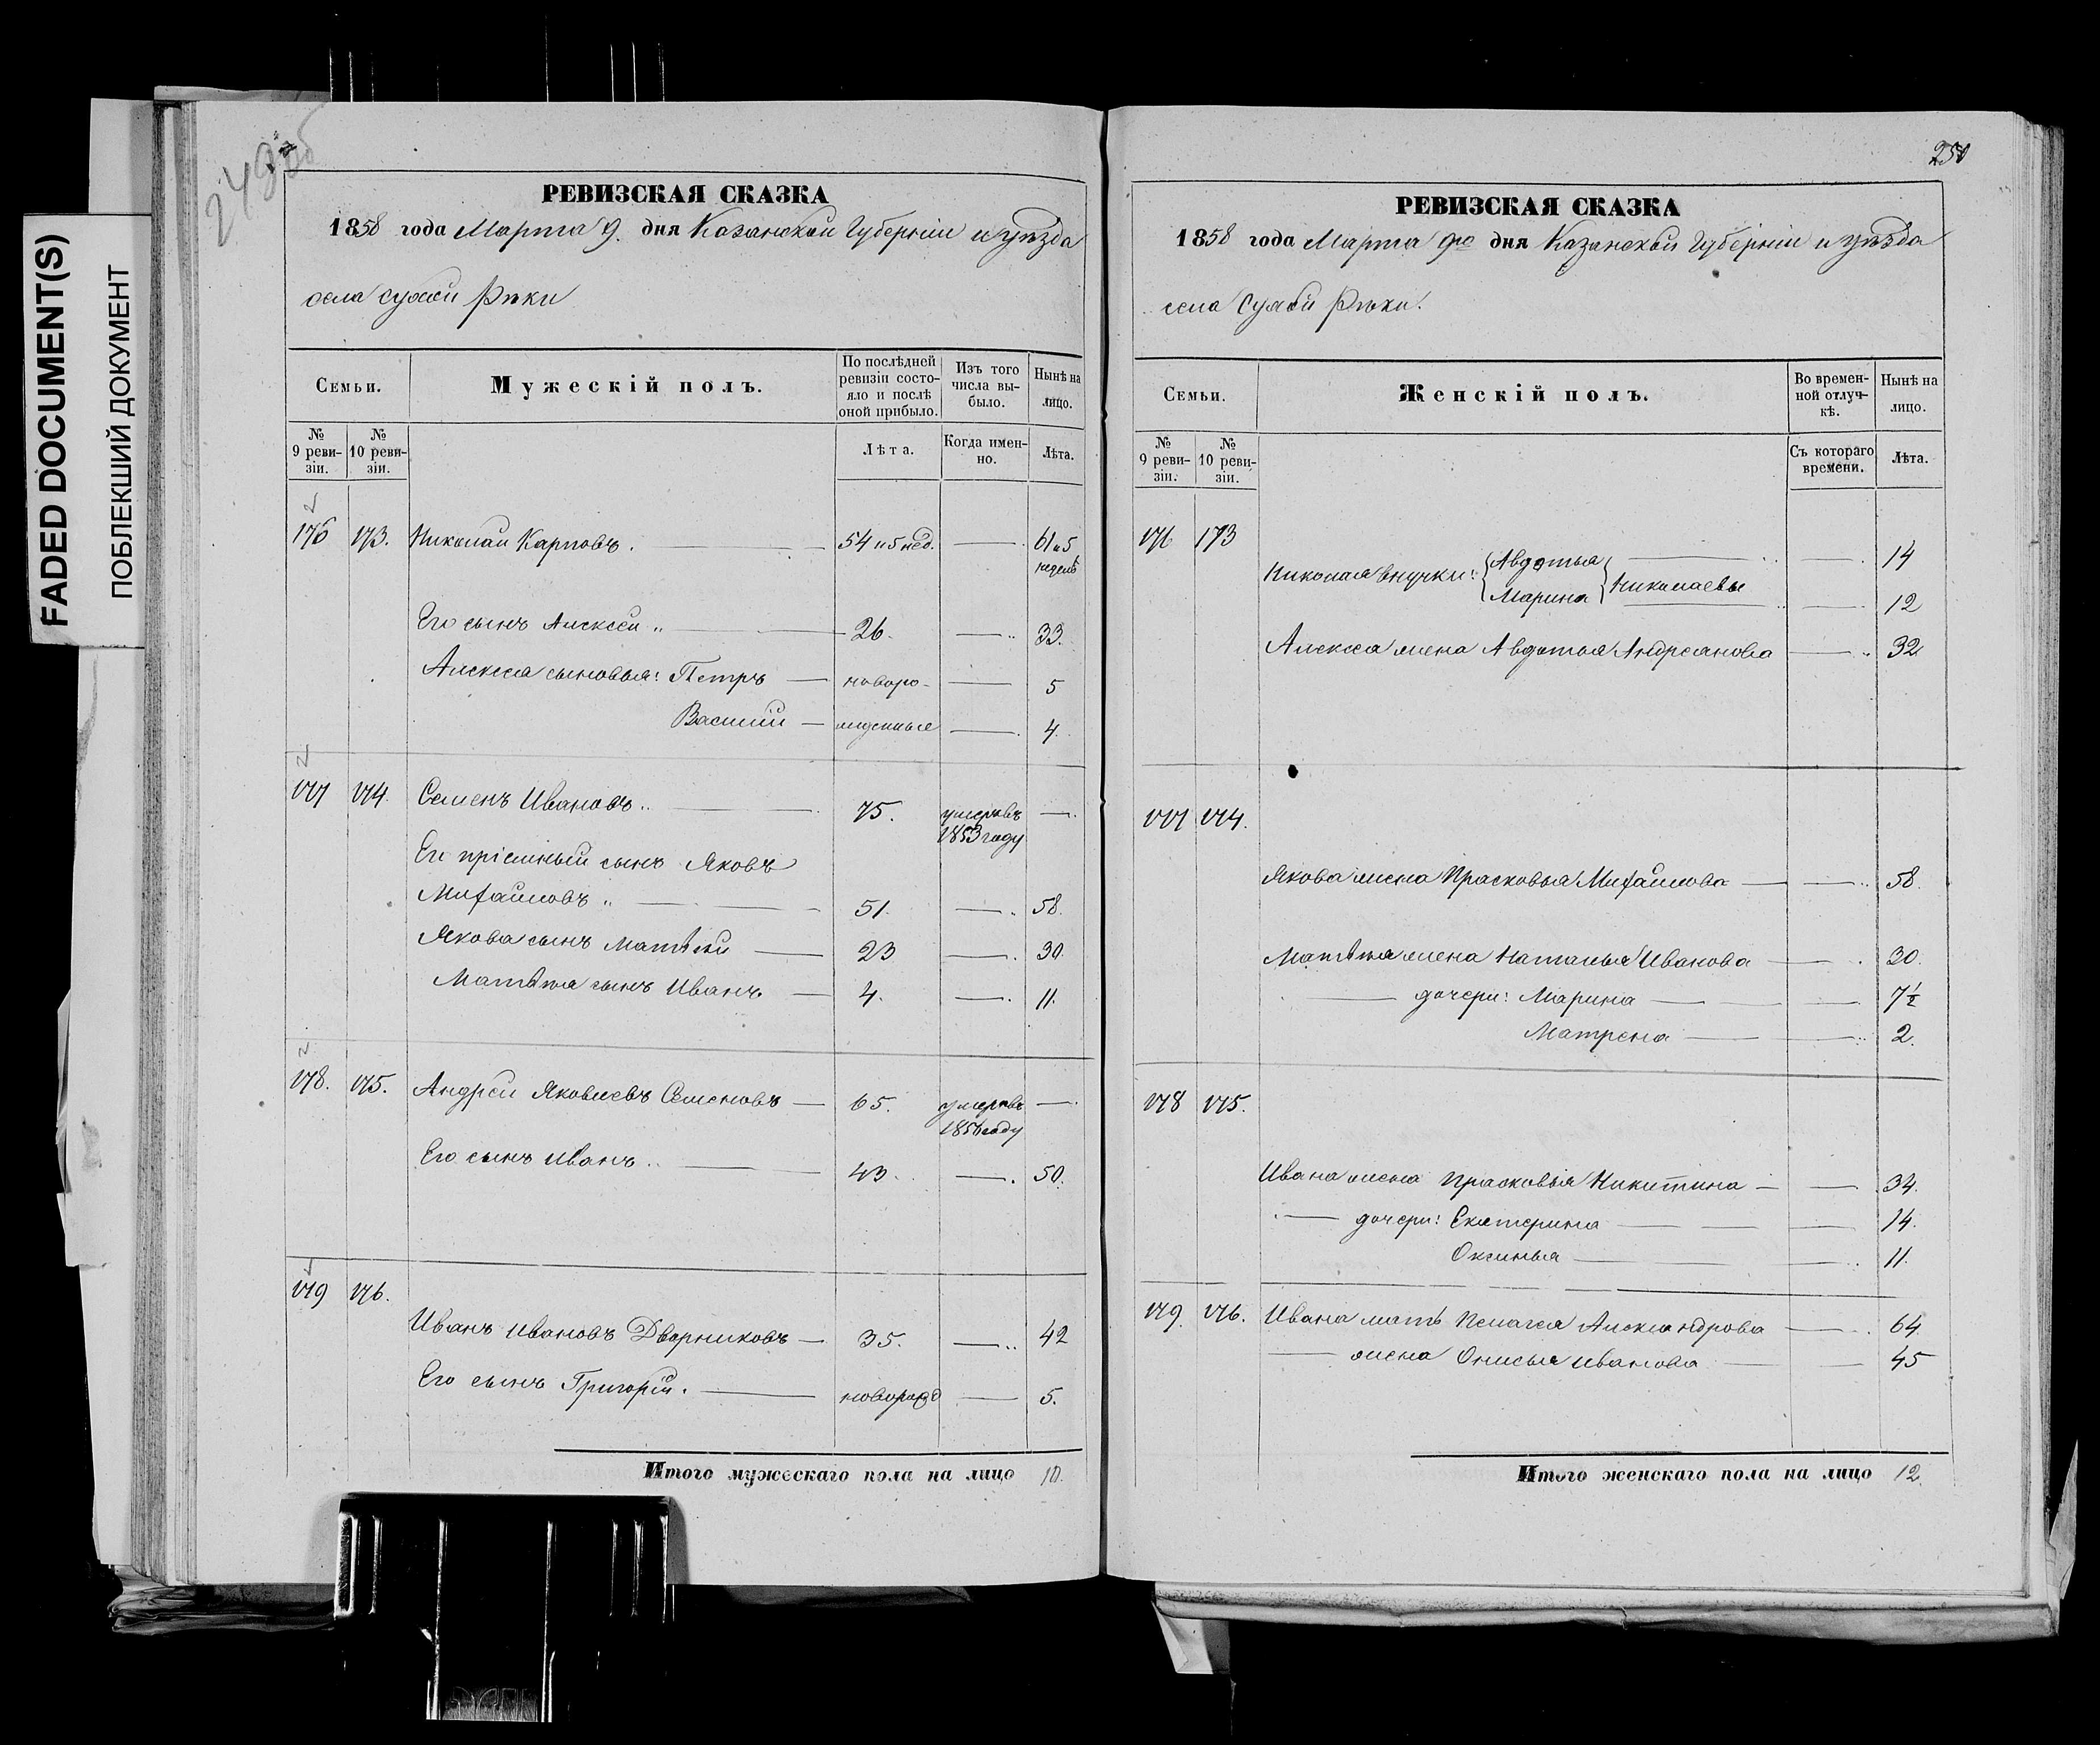 FADED DOCUMENT(S)
ПОБЛЕКШИЙ ДОКУМЕНТ
РЕВИЗСКАЯ СКАЗКА
1858 года Марта 9. дня Казанской Губерніи и уѣзда
села сухой рѣки
Семьи.
Мужескій полъ.
По послѣдней ревизіи состояло и послѣ оной прибыло.
Изъ того числа выбыло.
Нынѣ на лицо.
№ 9 ревизіи.
№ 10 ревизіи.
Лѣта.
Когда именно.
Лѣта.
176 173. Николай Карповъ. 54 и 5 нед. 61 и 5 недель
Его сынъ Алексей 26. 33.
Алексея сыновья: Петръ новоро- 5
Василій жденные 4.
177 174. Семенъ Ивановъ 75. умеръ въ 1853 году
Ег пріемный сынъ Яковъ
Михайловъ 51. 58.
Якова сынъ Матвѣй 23 30.
Матвѣя сынъ Иванъ 4. 11.
178. 175. Андрей Яковлевъ Семеновъ 65. умеръ въ 1856 году
Его сынъ Иванъ 43. 50.
179 176.
Иванъ Ивановъ Дворниковъ 35. 42
Его сынъ Григорій. новорожд 5.
Итого мужескаго пола на лицо 10.
250
РЕВИЗСКАЯ СКАЗКА
1858 года Марта 9го дня Казанской Губерніи и уѣзда
села Сухой рѣки.
Семьи.
Женскій полъ.
Во временной отлучкѣ.
Нынѣ на лицо.
№ 9 ревизіи.
№ 10 ревизіи.
Съ котораго времени.
Лѣта.
176 173
Николая внучки: Авдотья 14
Марина Николаевы 12
Алексея жена Авдотья Андреанова 32
177 174.
Якова жена Прасковья Михайлова 58.
Матвѣя жена Наталья Иванова 30.
дочери: Марина 7½
Матрена 2.
178 175.
Ивана жена Прасковья Никитина 34.
дочери: Екатерина 14.
Оксинья 11.
179. 176. Ивана мать Пелагея Александрова 64.
жена Онисья Иванова 45
Итого женскаго пола на лицо 12.